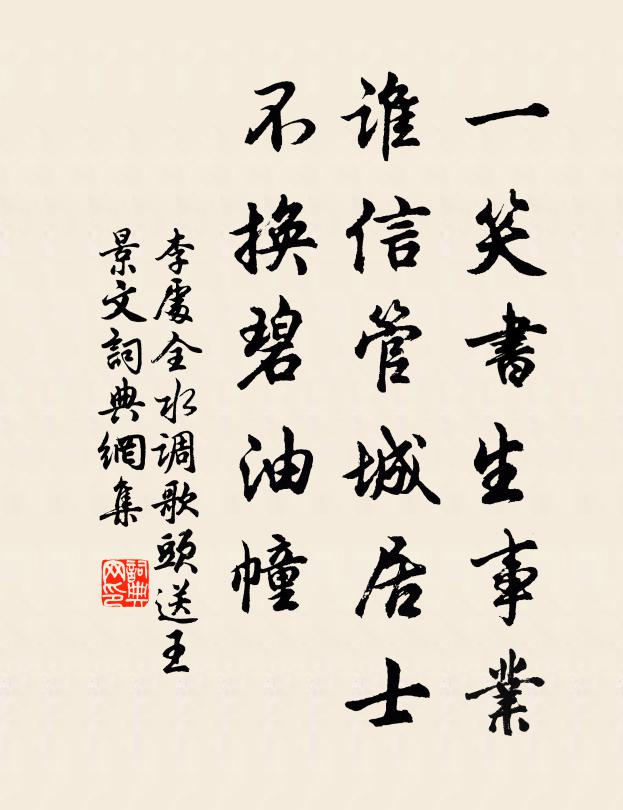 一笑書生事業
誰信管城居士
不換碧油幢
李處全水调歌頭送王
景文詞典網集
詞典网印